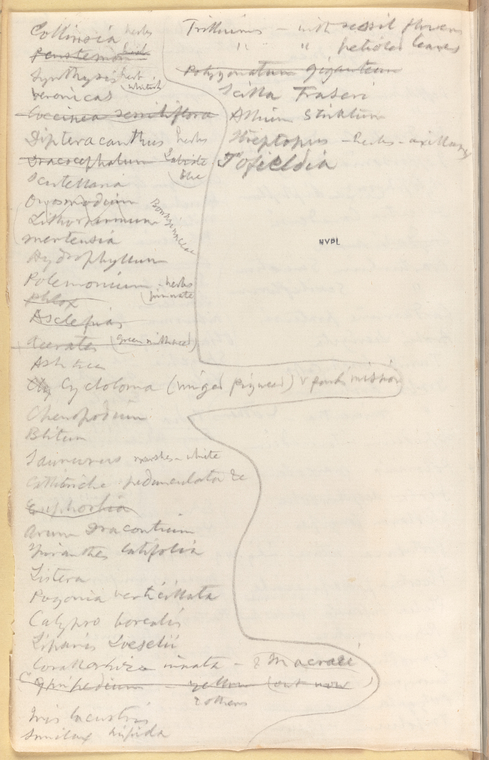 Collinsia herbs
Penstemon
Synthysis
Veronicas
Coccinea sessiliflora
Dipteracanthus herbs
Dracocephalum Labiate blue
Scutellaria
Onosmodium Borraginaceae
Lithospermum
Mertensia
Hydrophyllum
Polemonium herbs pinnate
Phlox
Asclepias
(green milkweed)
Cycloloma (winged pigweed)
Chenopodium
Blitum
Saururus marshes - white
Callitriche pedunculata &c
Euphorbia
Arum Dracontium
Spiranthes latifolia
Listera
Pogonia verticillata
Calypso borealis
Liparis Loeselii
Corallorhiza innata - & Macraei
Cypripedium - yellow
& others
Iris lacustris
Smilax hispida
Trilliums - with sessil flowers
" " petioled leaves
Polygonatum giganteum
Scilla Fraseri
Allium Striatum
Streptopus - herbs - axillary
Tofieldia
NYPL